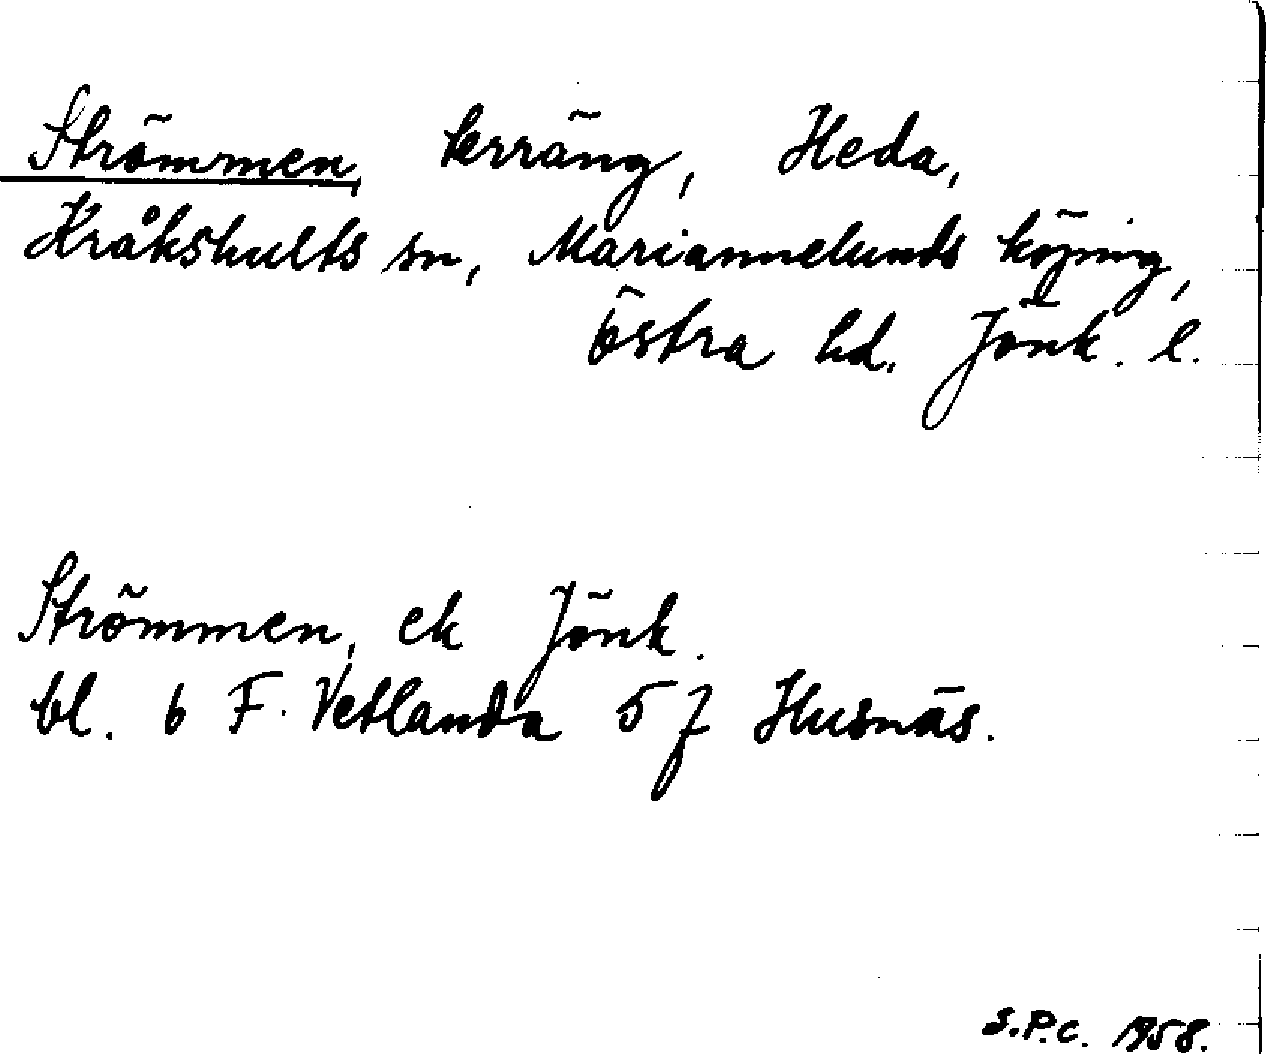 Strömmen, terräng, Heda,
Kråkshults sn, Mariannelunds köping,
östra hd. Jönk. l.
Strömmen, ek Jönk.
bl. 6 F. Vetlanda 5 f Husnäs.
S.P.C. 1958.